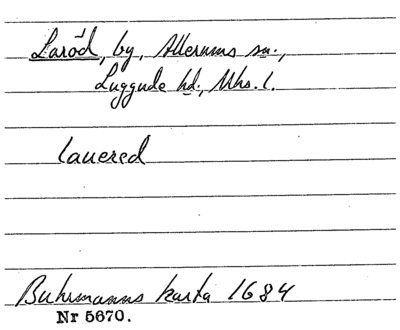 Laröd, by, Allerums sn.,
Luggude hd., Mhs. l.
lauered
Buhrmanns karta 1684
Nr 5670.